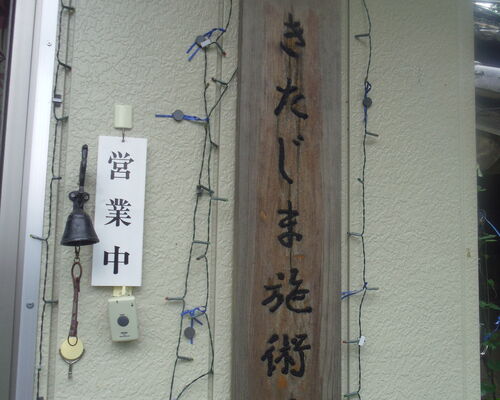 営業中
きたじま施術